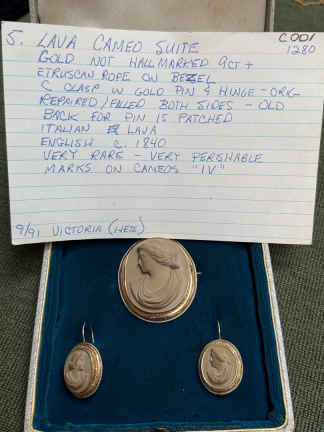 5. LAVA CAMEO SUITE
C001
1280
GOLD NOT HALLMARKED 9CT +
ETRUSCAN ROPE ON BEZEL
C CLASP W GOLD PIN & HINGE - ORG
REPAIRED/FILLED BOTH SIDES - OLD
BACK FOR PIN IS PATCHED
ITALIAN LAVA
ENGLISH C. 1840
VERY RARE - VERY PERSHABLE
MARKS ON CAMEOS "IV"
9/91 VICTORIA